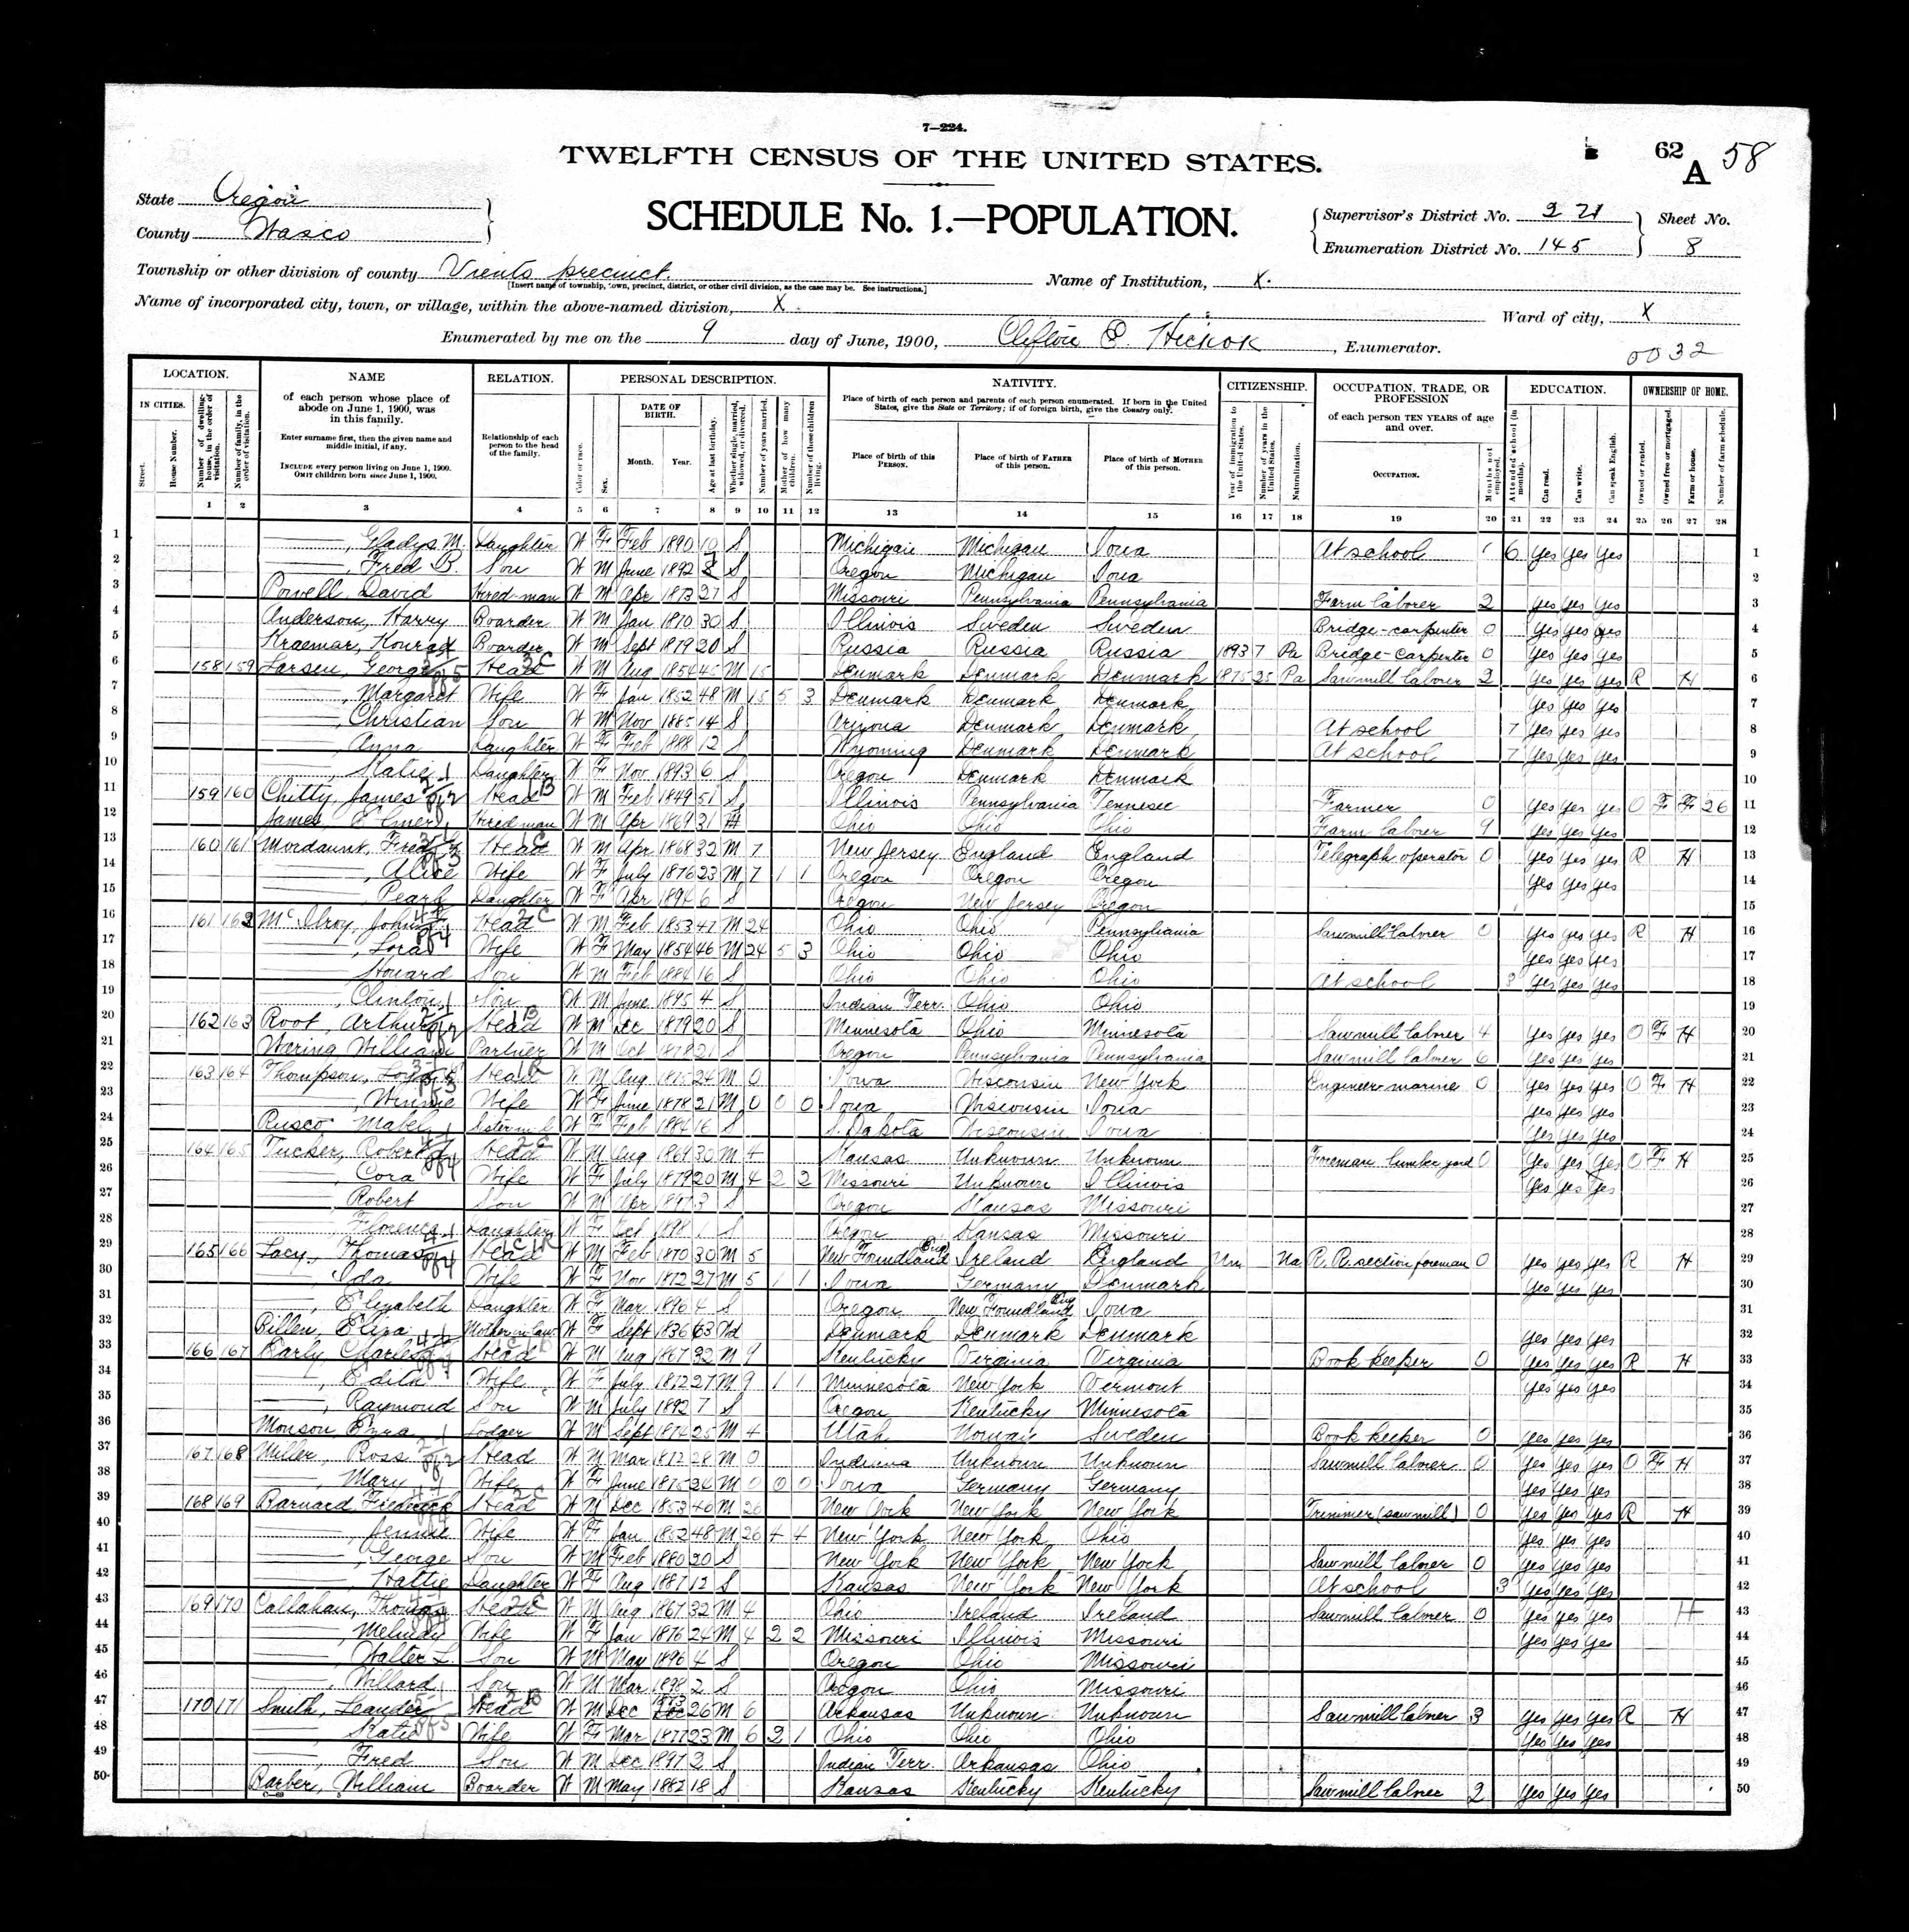 7—224.
TWELFTH CENSUS OF THE UNITED STATES.
62 A 58
State Oregon
County Wasco
SCHEDULE No. 1.—POPULATION.
Supervisor's District No.
Enumeration District No. 145
Sheet No. 8
Township or other division of county Viento precinct.
[Insert name of township, town, precinct, district, or other civil division, as the case may be. See instructions.]
Name of Institution, X.
Name of incorporated city, town, or village, within the above-named division, X.
Ward of city, X
Enumerated by me on the 9 day of June, 1900, Clifton E. Hickok, Enumerator.
0032
LOCATION. NAME RELATION. PERSONAL DESCRIPTION. NATIVITY. CITIZENSHIP. OCCUPATION, TRADE, OR PROFESSION EDUCATION. OWNERSHIP OF HOME.
IN CITIES. Street. House Number. Number of dwelling-house, in the order of visitation. Number of family, in the order of visitation.
of each person whose place of abode on June 1, 1900, was in this family.
Enter surname first, then the given name and middle initial, if any.
INCLUDE every person living on June 1, 1900. OMIT children born since June 1, 1900.
Relationship of each person to the head of the family.
Color or race. Sex. DATE OF BIRTH. Month. Year. Age at last birthday. Whether single, married, widowed, or divorced. Number of years married. Mother of how many children. Number of these children living.
Place of birth of each person and parents of each person enumerated. If born in the United States, give the State or Territory; if of foreign birth, give the Country only.
Place of birth of this PERSON. Place of birth of FATHER of this person. Place of birth of MOTHER of this person.
Year of immigration to the United States. Number of years in the United States. Naturalization.
of each person TEN YEARS of age and over.
OCCUPATION. Months not employed. Attended school (in months). Can read. Can write. Can speak English. Owned or rented. Owned free or mortgaged. Farm or house. Number of farm schedule.
1 2 3 4 5 6 7 8 9 10 11 12 13 14 15 16 17 18 19 20 21 22 23 24 25 26 27 28
1 ——, Gladys M. Daughter W F Feb 1890 10 S Michigan Michigan Iowa At school 6 Yes Yes Yes 1
2 ——, Fred B. Son W M June 1892 7 S Oregon Michigan Iowa 2
3 Powell David Hired man W M Apr 1873 27 S Missouri Pennsylvania Pennsylvania Farm laborer 2 Yes Yes Yes 3
4 Anderson, Harry Boarder W M Jan 1870 30 S Illinois Sweden Sweden Bridge-carpenter 0 Yes Yes Yes 4
5 Kraemar, Konrad Boarder W M Sept 1879 20 S Russia Russia Russia 1893 7 Pa Bridge-carpenter 0 Yes Yes Yes 5
6 158 159 Larsen, George Head W M Aug 1854 45 M 15 Denmark Denmark Denmark 1875 25 Pa Sawmill laborer 2 Yes Yes Yes R H 6
7 ——, Margaret Wife W F Jan 1852 48 M 15 5 3 Denmark Denmark Denmark Yes Yes Yes 7
8 ——, Christian Son W M Nov 1885 14 S Arizona Denmark Denmark At school 7 Yes Yes Yes 8
9 ——, Anna Daughter W F Feb 1888 12 S Wyoming Denmark Denmark At school 7 Yes Yes Yes 9
10 ——, Katie Daughter W F Nov 1893 6 S Oregon Denmark Denmark 10
11 159 160 Chitty, James Head W M Feb 1849 51 S Illinois Pennsylvania Tennesee Farmer 0 Yes Yes Yes O F F 26 11
12 James, Elmer Hired man W M Apr 1869 31 Ohio Ohio Ohio Farm laborer 9 Yes Yes Yes 12
13 160 161 Mordaunt, Fred Head W M Apr 1868 32 M 7 New Jersey England England Telegraph operator 0 Yes Yes Yes R H 13
14 ——, Alice Wife W F July 1876 23 M 7 1 1 Oregon Oregon Oregon Yes Yes Yes 14
15 ——, Pearl Daughter W F Apr 1894 6 S Oregon New Jersey Oregon 15
16 161 162 McIlroy, John Head W M Feb 1853 47 M 24 Ohio Ohio Pennsylvania Sawmill laborer 0 Yes Yes Yes R H 16
17 ——, Wife W F May 1854 46 M 24 5 3 Ohio Ohio Ohio Yes Yes Yes 17
18 ——, Howard Son W M Feb 1884 16 S Ohio Ohio Ohio At school 3 Yes Yes Yes 18
19 ——, Clinton Son W M June 1895 4 S Indian Terr. Ohio Ohio 19
20 162 163 Root, Arthur Head W M Dec 1879 20 S Minnesota Ohio Minnesota Sawmill laborer 4 Yes Yes Yes O F H 20
21 Waring William Partner W M Oct 1878 21 S Oregon Pennsylvania Pennsylvania Sawmill laborer 6 Yes Yes Yes 21
22 163 164 Thompson, Head W M Aug 1875 24 M 0 Iowa Wisconsin New York Engineer-marine 0 Yes Yes Yes O F H 22
23 ——, Winnie Wife W F June 1878 21 M 0 0 0 Iowa Wisconsin Iowa Yes Yes Yes 23
24 Rusco Mabel Sister in l W F Feb 1884 16 S S. Dakota Wisconsin Iowa Yes Yes Yes 24
25 164 165 Tucker, Robert Head W M Aug 1869 30 M 4 Kansas Unknown Unknown Foreman lumber yard 0 Yes Yes Yes O F H 25
26 ——, Cora Wife W F July 1879 20 M 4 2 2 Missouri Unknown Illinois Yes Yes Yes 26
27 ——, Robert Son W M Apr 1897 3 S Oregon Kansas Missouri 27
28 ——, Florence Daughter W F Oct 1898 1 S Oregon Kansas Missouri 28
29 165 166 Lacy, Thomas Head W M Feb 1870 30 M 5 New Foundland Eng Ireland England Un Na R. R. section foreman 0 Yes Yes Yes R H 29
30 ——, Ida Wife W F Nov 1872 27 M 5 1 1 Iowa Germany Denmark Yes Yes Yes 30
31 ——, Elizabeth Daughter W F Mar 1896 4 S Oregon New Foundland Eng Iowa 31
32 Billen, Eliza Mother in law W F Sept 1836 63 Wd Denmark Denmark Denmark Yes Yes Yes 32
33 166 167 Early, Charles Head W M Aug 1867 32 M 9 Kentucky Virginia Virginia Book keeper 0 Yes Yes Yes R H 33
34 ——, Edith Wife W F July 1872 27 M 9 1 1 Minnesota New York Vermont Yes Yes Yes 34
35 ——, Raymond Son W M July 1892 7 S Oregon Kentucky Minnesota 35
36 Monson, Ezra Lodger W M Sept 1874 25 M 4 Utah Norway Sweden Book keeper 0 Yes Yes Yes 36
37 167 168 Miller, Ross Head W M Mar 1872 28 M 0 Indiana Unknown Unknown Sawmill laborer 0 Yes Yes Yes O F H 37
38 ——, Mary Wife W F June 1875 24 M 0 0 0 Iowa Germany Germany Yes Yes Yes 38
39 168 169 Barnard Frederick Head W M Dec 1853 46 M 26 New York New York New York Trimmer (sawmill) 0 Yes Yes Yes R H 39
40 ——, Jennie Wife W F Jan 1852 48 M 26 4 4 New York New York Ohio Yes Yes Yes 40
41 ——, George Son W M Feb 1880 20 S New York New York New York Sawmill laborer 0 Yes Yes Yes 41
42 ——, Hattie Daughter W F Aug 1887 12 S Kansas New York New York At school 3 Yes Yes Yes 42
43 169 170 Callahan, Thomas Head W M Aug 1867 32 M 4 Ohio Ireland Ireland Sawmill laborer 0 Yes Yes Yes H 43
44 ——, Melindy Wife W F Jan 1876 24 M 4 2 2 Missouri Illinois Missouri Yes Yes Yes 44
45 ——, Walter L. Son W M May 1896 4 S Oregon Ohio Missouri 45
46 ——, Willard Son W M Mar 1898 2 S Oregon Ohio Missouri 46
47 170 171 Smith, Leander Head W M Dec 1873 26 M 6 Arkansas Unknown Unknown Sawmill laborer 3 Yes Yes Yes R H 47
48 ——, Katie Wife W F Mar 1877 23 M 6 2 1 Ohio Ohio Ohio Yes Yes Yes 48
49 ——, Fred Son W M Dec 1897 2 S Indian Terr. Arkansas Ohio 49
50 Barber, William Boarder W M May 1882 18 S Kansas Kentucky Kentucky Sawmill laborer 2 Yes Yes Yes 50